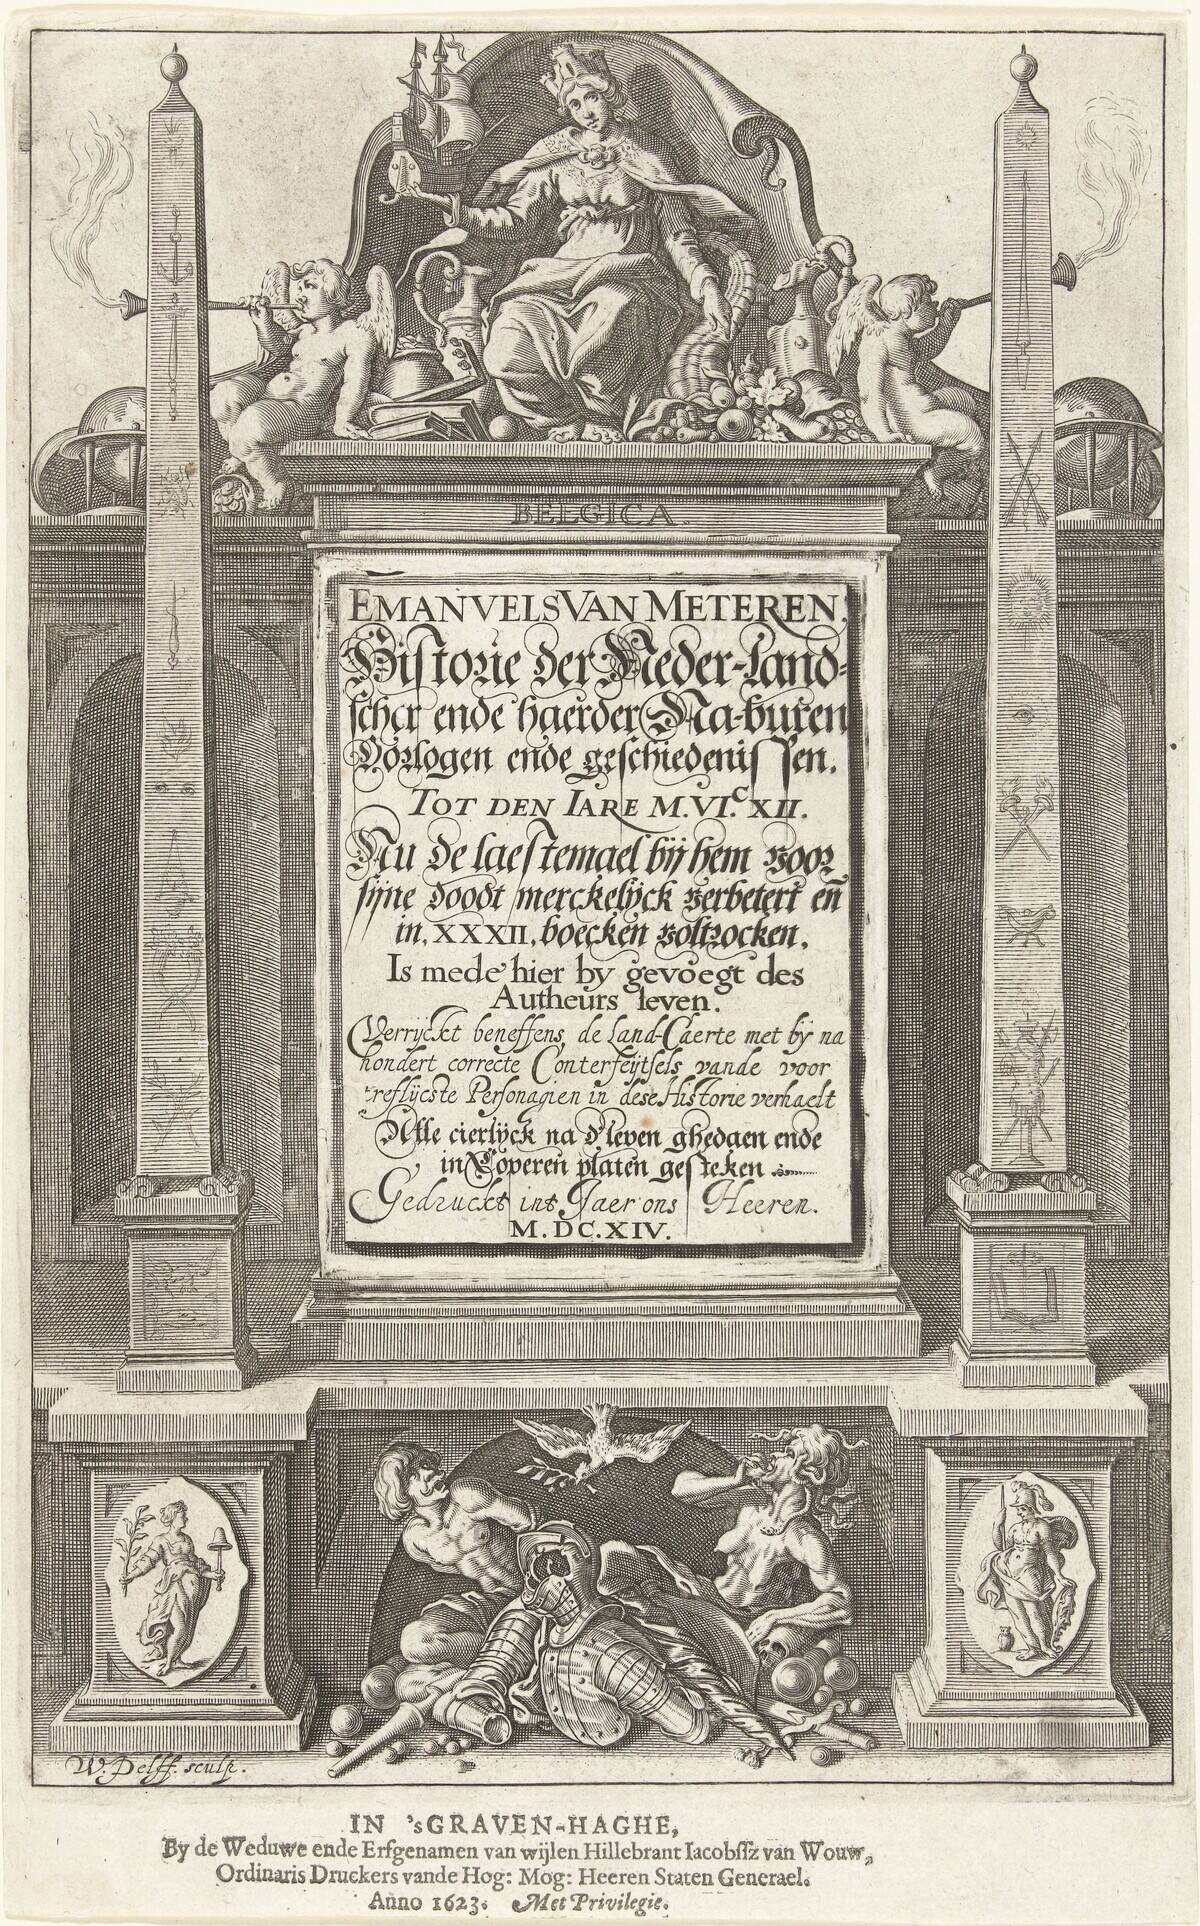 BELGICA.
EMANVELS VAN METEREN,
Historie der Neder-land-
scher ende haerder Na-buren
Oorlogen ende geschiedenissen.
TOT DEN IARE M.VI.C XII.
Nu de laestemael bij hem voor
sijne doodt merckelijck verbetert en̄
in, XXXII, boecken voltrocken.
Is mede hier by gevoegt des
Autheurs leven.
Verryckt beneffens de Land-Caerte met by na
hondert correcte Conterfeijtsels vande voor
treflijcste Personagien in dese Historie verhaelt
Alle cierlijck na d'leven ghedaen ende
in Coperen platen gesteken
Gedruckt int Jaer ons Heeren.
M.DC.XIV.
W. Delff. sculp.
IN 'sGRAVEN-HAGHE,
By de Weduwe ende Erfgenamen van wijlen Hillebrant Iacobssz van Wouw,
Ordinaris Druckers vande Hog: Mog: Heeren Staten Generael.
Anno 1623. Met Privilegie.